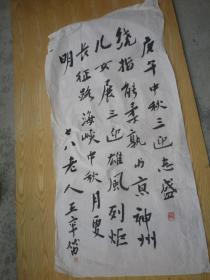 庚午中秋三迎志盛
绕指能柔孰内京神州
儿女展三迎雄风列炬
长征路海峡中秋月更
明
十八老人王辛笛